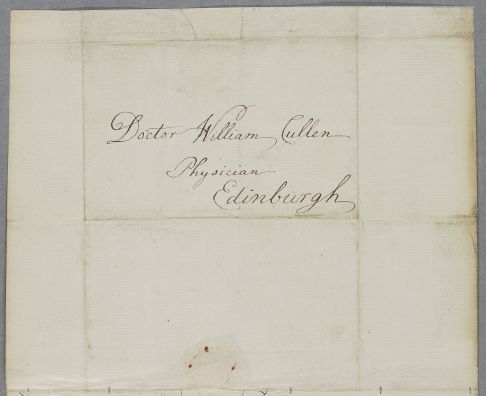 Doctor William Cullen
Physician
Edinburgh